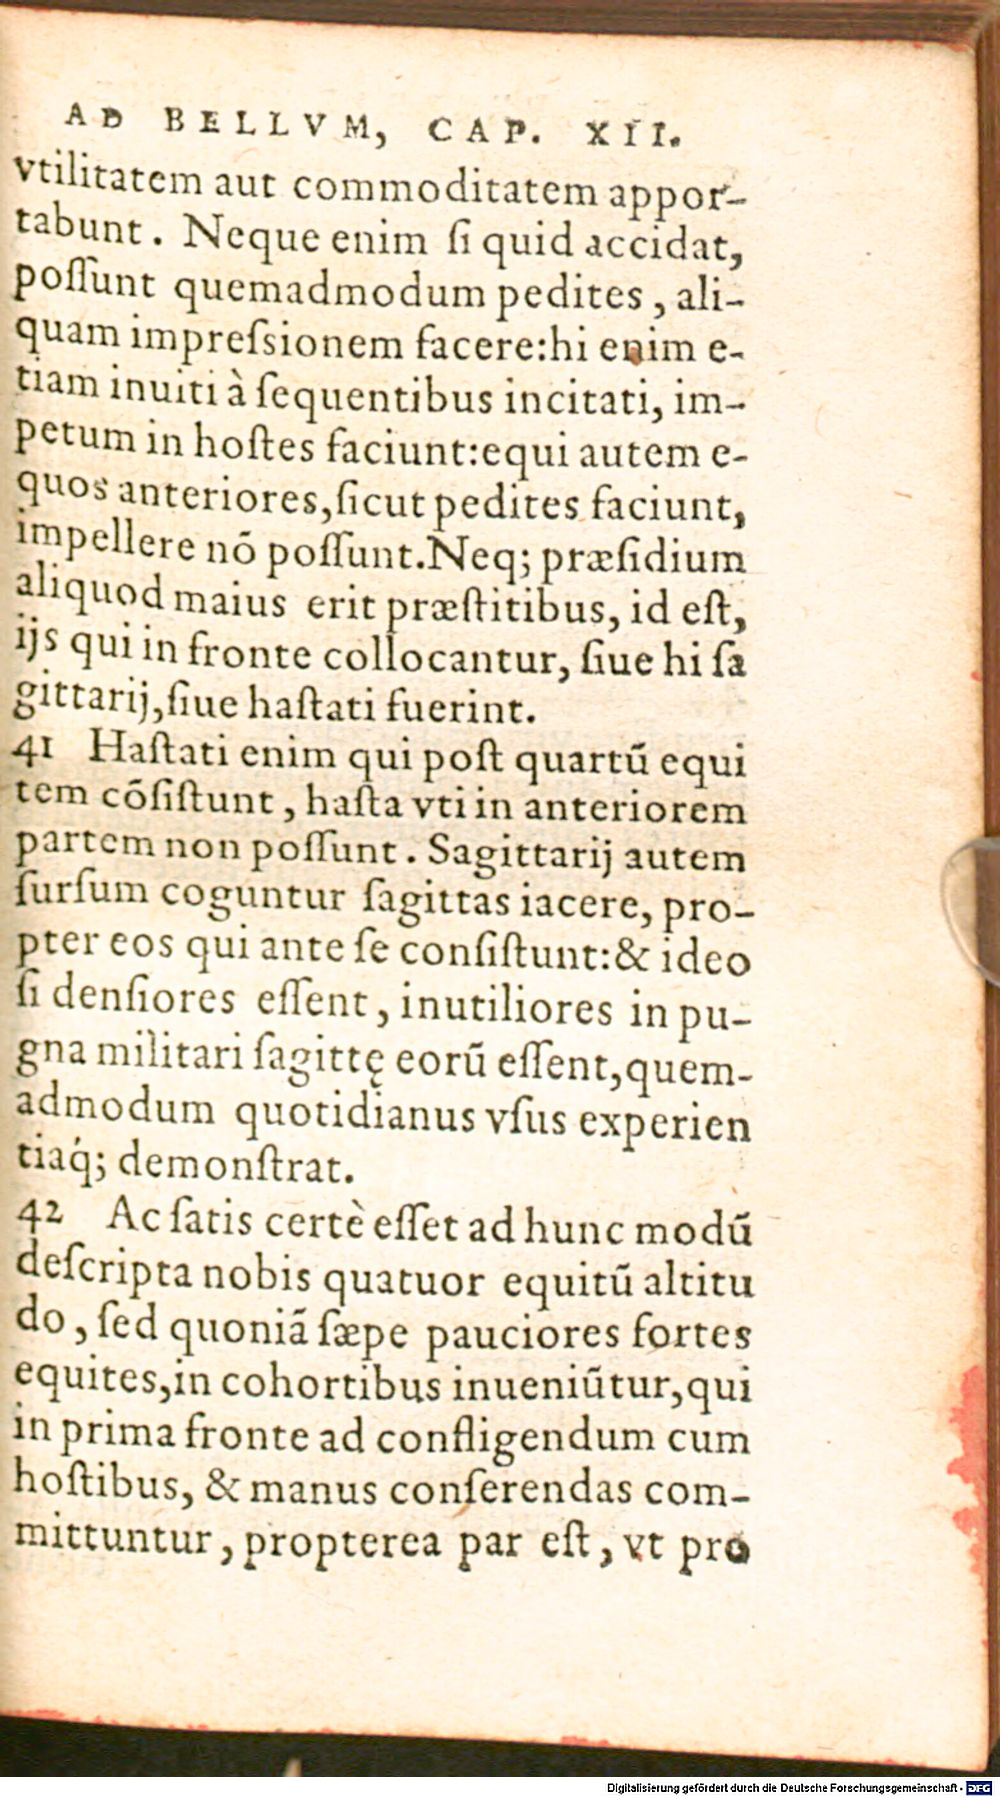 AD BELLVM, CAP. XII.
vtilitatem aut commoditatem appor-
tabunt. Neque enim ſi quid accidat,
poſſunt quemadmodum pedites, ali-
quam impreſsionem facere:hi enim e-
tiam inuiti à ſequentibus incitati, im-
petum in hoſtes faciunt:equi autem e-
quos anteriores,ſicut pedites faciunt,
impellere nõ poſſunt.Neq; præſidium
aliquod maius erit præſtitibus, id eſt,
ijs qui in fronte collocantur, ſiue hi ſa
gittarij,ſiue haſtati fuerint.
41 Haſtati enim qui poſt quartũ equi
tem cõſiſtunt, haſta vti in anteriorem
partem non poſſunt. Sagittarij autem
ſurſum coguntur ſagittas iacere, pro-
pter eos qui ante ſe conſiſtunt:& ideo
ſi denſiores eſſent, inutiliores in pu-
gna militari ſagittę eorũ eſſent,quem-
admodum quotidianus vſus experien
tiaq́; demonſtrat.
42 Ac ſatis certè eſſet ad hunc modũ
deſcripta nobis quatuor equitũ altitu
do, ſed quoniã ſæpe pauciores fortes
equites,in cohortibus inueniũtur,qui
in prima fronte ad confligendum cum
hoſtibus, & manus conſerendas com-
mittuntur, propterea par eſt, vt pro
Digitalisierung gefördert durch die Deutsche Forschungsgemeinschaft - DFG